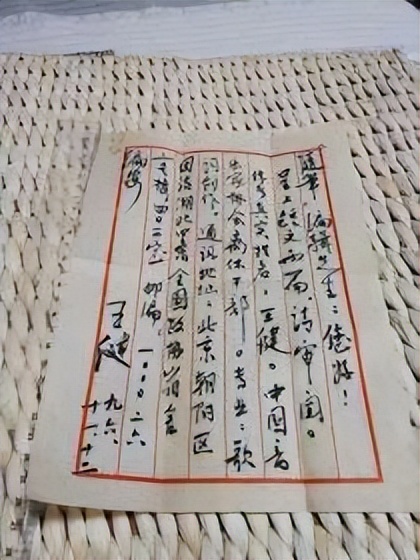 随笔 编辑先生：您好！
呈上短文两页，请审阅。
作者真实姓名：王健。中国音
乐家协会离休干部。专业：歌
词创作。通讯地址：北京朝阳区
团结湖北里 全国政协宿舍
一号楼，四〇二室 邮编：一〇〇〇二六
编安
王健
九六、
十一、十二